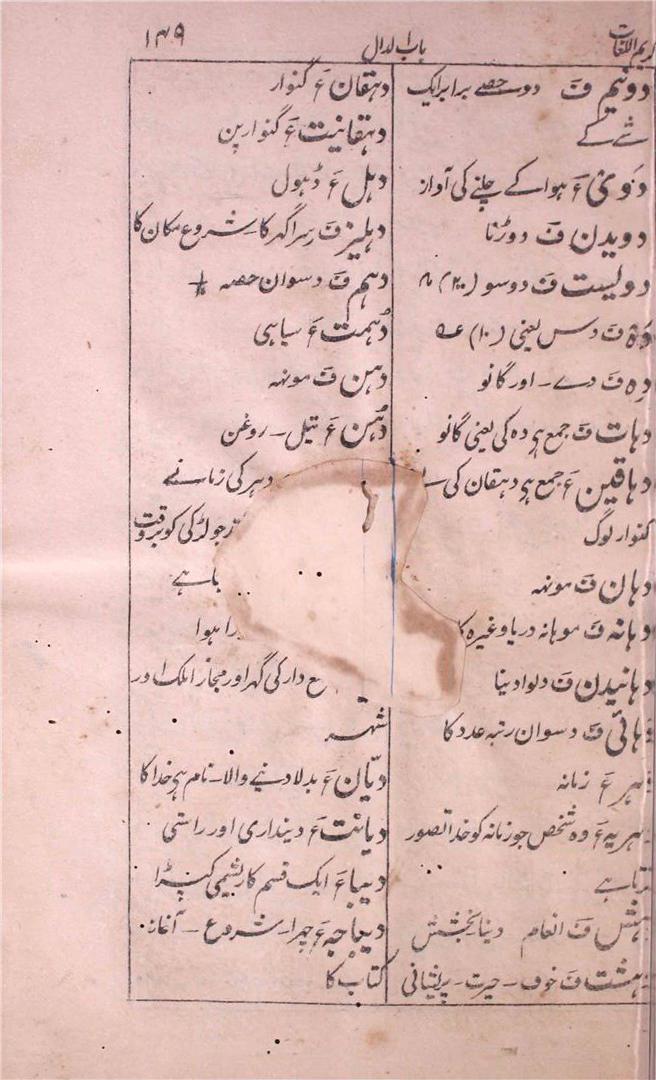 کریم اللغات
باب الدال
۱۴۹
دونیم ف دو حصے برابر ایک
شے کے
دَوِیّ ع ہوا کے چلنے کی آواز
دویدن ف دوڑنا
دولیست ف دوسو (۲۰۰)
دَہ ف دس یعنی (۱۰)
دِہ ف دے ۔ اور گانو
دہات ف جمع ہی دہ کی یعنی گانو
دہاقین ع جمع ہی دہقان کی
گنوار لوگ
دہان ف مونہہ
دہانہ ف موہانہ دریا وغیرہ کا
دہانیدن ف دلوا دینا
دہائی ف دسوان رتبہ عدد کا
دہر ع زمانہ
دہریہ ع وہ شخص جو زمانہ کو خدا تصور
کرتا ہے
دہش ف انعام دینا بخشش
دہشت ف خوف ۔ حیرت ۔ پریشانی
دہقان ع گنوار
دہقانیت ع گنوارپن
دہل ع ڈہول
دہلیز ف سرا گہر کا ۔ شروع مکان کا
دہم ف دسوان حصہ
دُہمت ع سیاہی
دہن ف مونہہ
دُہن ع تیل ۔ روغن
دہر کی زمانے
جو لڑکی کو بروقت
ہے
ہوا
دار کی گہر اور مجازاً ملک اور
شہر
دیّان ع بدلا دنیے والا ۔ نام ہی خدا کا
دیانت ع دینداری اور راستی
دیبا ع ایک قسم کا ریشمی کپڑا
دیباجہ ع چہرا ۔ شروع ۔ آغاز
کتاب کا